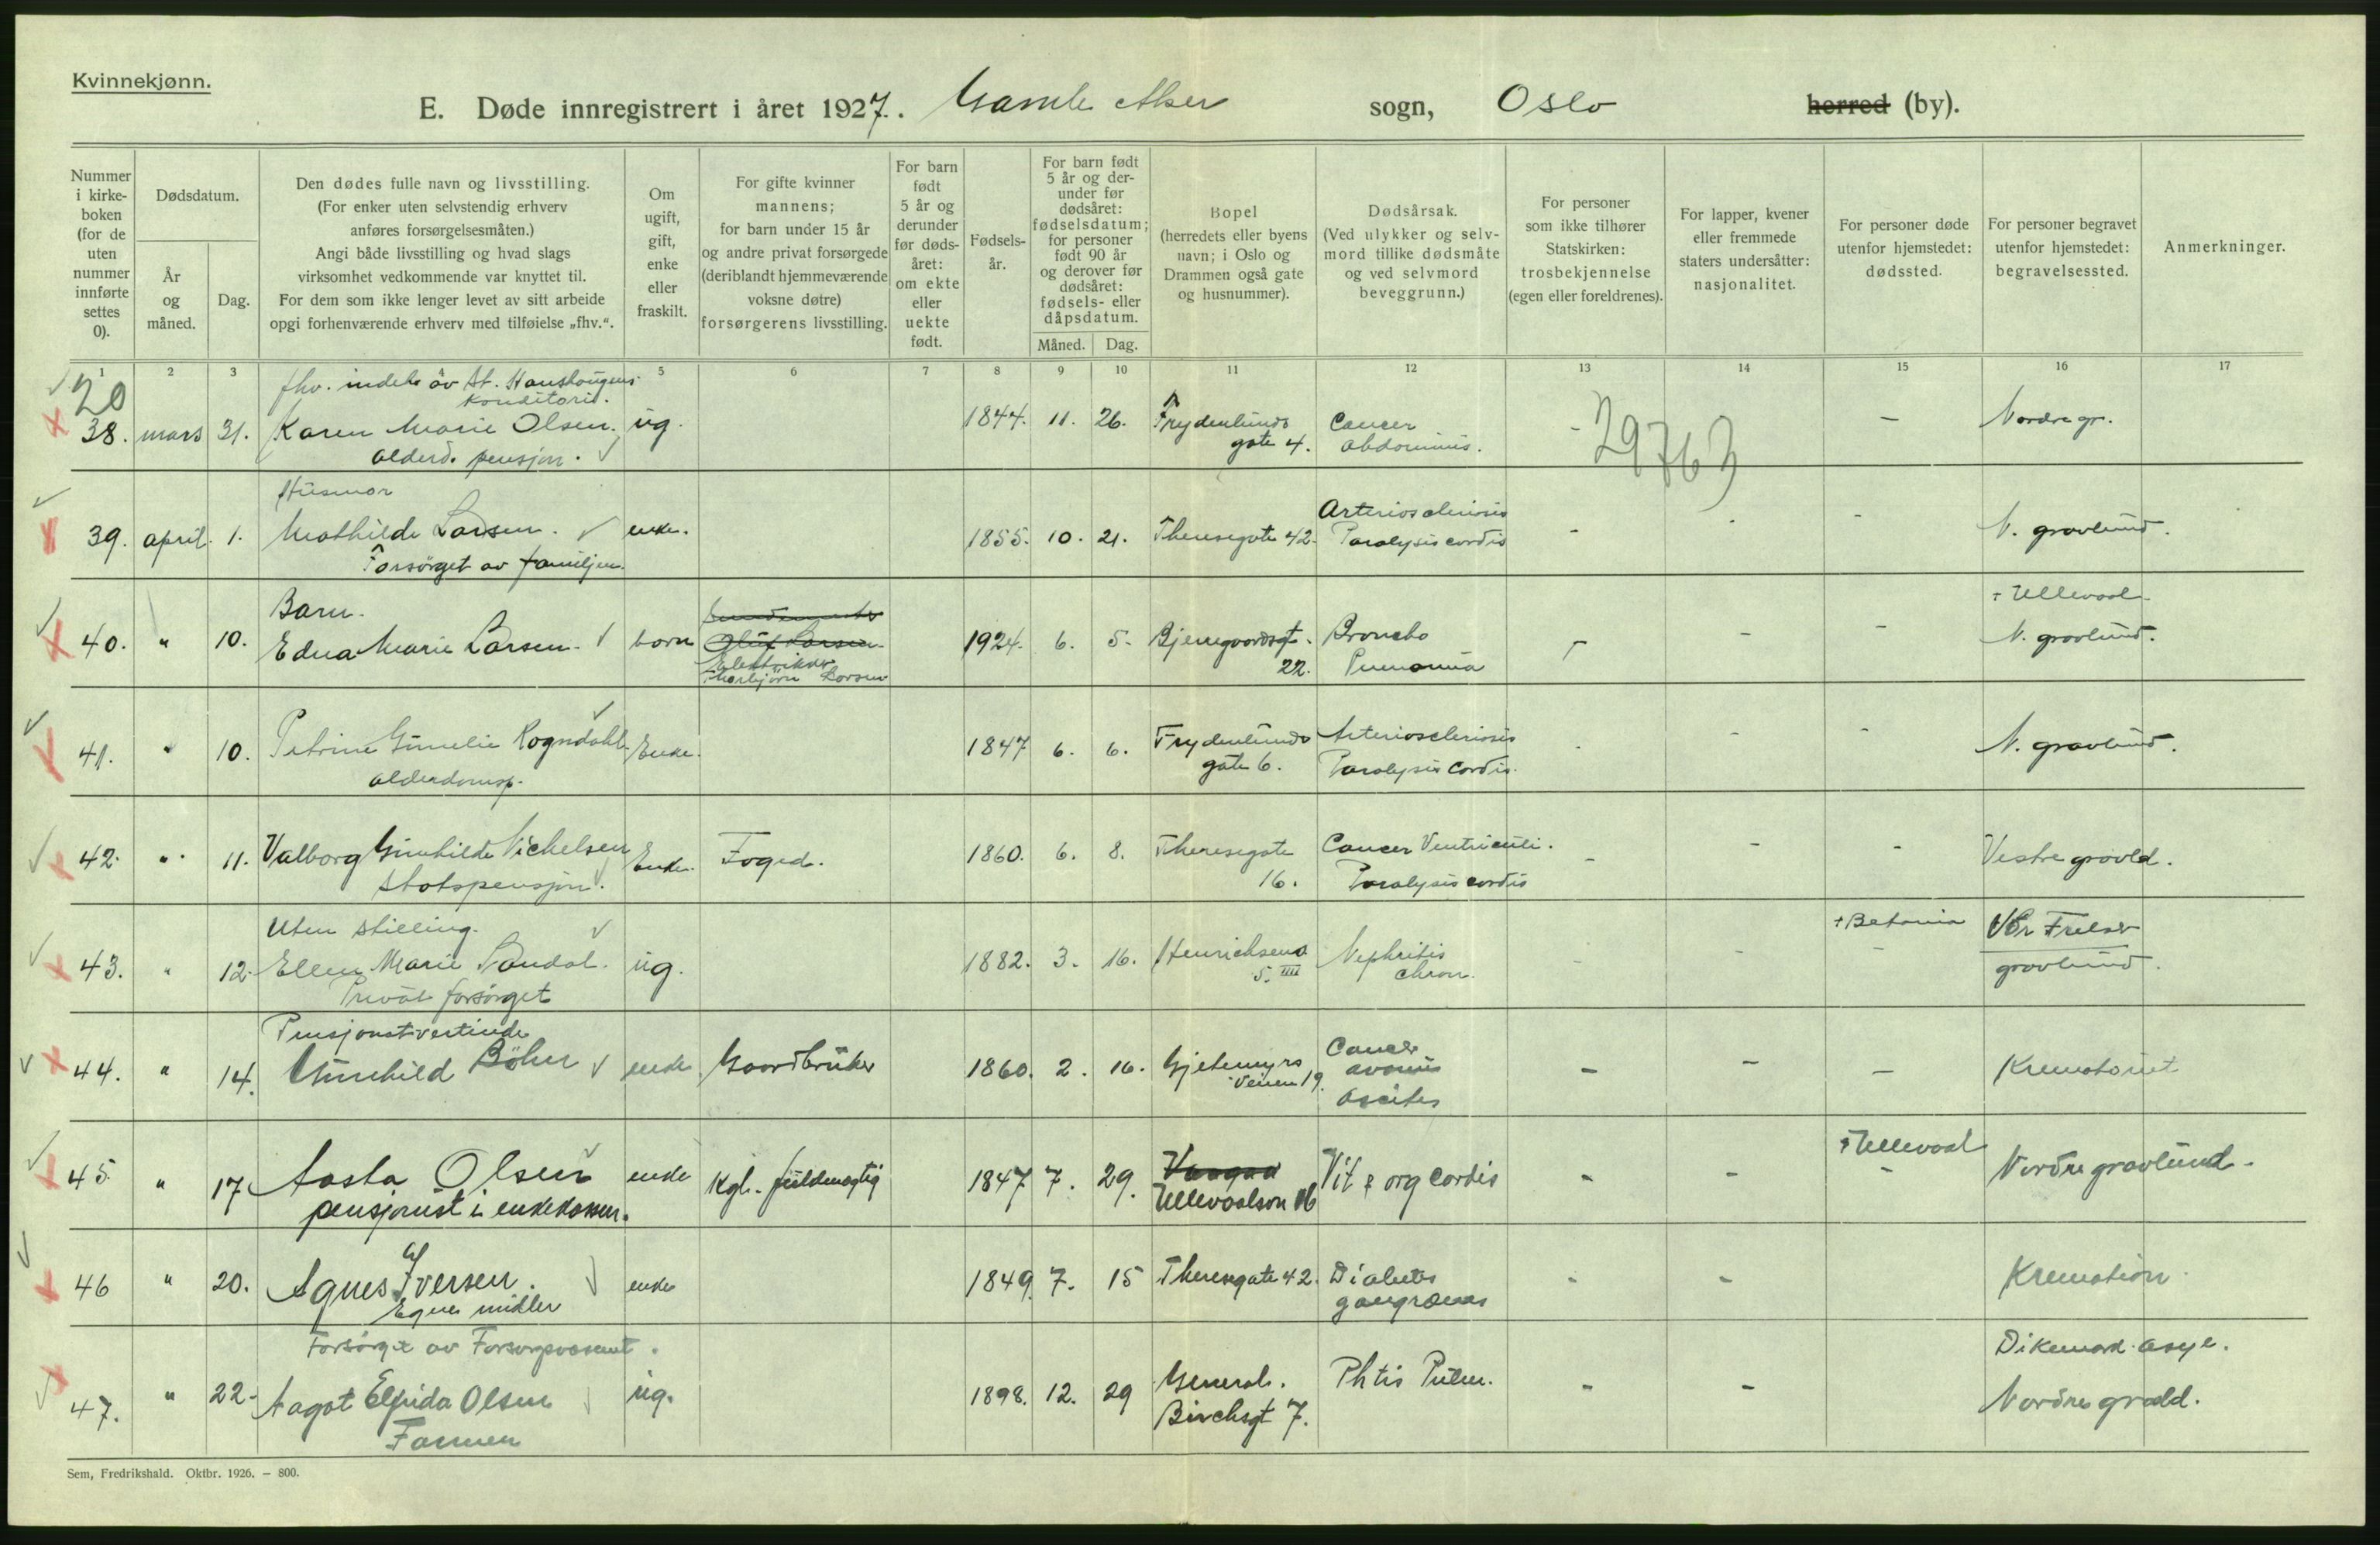 Kvinnekjønn.
E. Døde innregistrert i året 1927. Gamle Aker sogn, Oslo herred (by).
Nummer i kirkeboken (for de uten nummer innførte settes 0).
Dødsdatum.
År og måned.
Dag.
Den dødes fulle navn og livsstilling.
(For enker uten selvstendig erhverv
anføres forsørgelsesmåten.)
Angi både livsstilling og hvad slags
virksomhet vedkommende var knyttet til.
For dem som ikke lenger levet av sitt arbeide
opgi forhenværende erhverv med tilføielse „fhv.“.
Om ugift, gift, enke eller fraskilt.
For gifte kvinner
mannens;
for barn under 15 år
og andre privat forsørgede
(deriblandt hjemmeværende
voksne døtre)
forsørgerens livsstilling.
For barn født 5 år og derunder før dødsåret: om ekte eller uekte født.
Fødselsår.
For barn født 5 år og derunder før dødsåret: fødselsdatum; for personer født 90 år og derover før dødsåret: fødsels- eller dåpsdatum.
Måned. Dag.
Bopel
(herredets eller byens
navn; i Oslo og
Drammen også gate
og husnummer).
Dødsårsak.
(Ved ulykker og selv-
mord tillike dødsmåte
og ved selvmord
beveggrunn.)
For personer
som ikke tilhører
Statskirken:
trosbekjennelse
(egen eller foreldrenes).
For lapper, kvener
eller fremmede
staters undersåtter:
nasjonalitet.
For personer døde
utenfor hjemstedet:
dødssted.
For personer begravet
utenfor hjemstedet:
begravelsessted.
Anmerkninger.
1 2 3 5 6 7 8 9 10 11 12 13 14 15 16 17
20
fhv. indeh. av St. Hanshougens
Konditori.
38. mars 31. Karen Marie Olsen. ug. 1844. 11. 26. Frydenlunds gate 4. Cancer abdominis. - 29763 - Nordre gr.
alderd. pensjon.
Husmor
39. april. 1. Mathilde Larsen. enke. 1855. 10. 21. Theresegate 42. Arteriosclerosis Paralysis cordis - - - N. gravlund.
Forsörget av familjen.
Barn.
40. " 10. Edna Marie Larsen. barn Olaf Larsen Elektriker Thorbjörn Larsen 1924. 6. 5. Bjerregaardsgt. 22. Broncho Pneumonia - - - + Ullevaal. N. gravlund.
41. " 10. Petrine Gunelie Rogndahl. Enke. 1847 6. 6. Frydenlunds gate 6. Arteriosclerosis Paralysis Cordis. - - - N. gravlund.
alderdomsp.
42. " 11. Valborg Gunhilde Michelsen Enke. Foged. 1860. 6. 8. Theresegate 16. Cancer Ventriculi. Paralysis cordis - - - Vestre gravld.
Statspensjon.
Uten stilling.
43. " 12. Ellen Marie Sandal. ug. 1882. 3. 16. Henrichsens 5. IIII Nephritis chron. - - + Betania - Vår Frelser gravlund.
Privat forsørget
Pensjonatvertinde
44. " 14. Gunhild Böhn enke Gaardbruker 1860. 2. 16. Gjetemyrs veien 19. Cancer ovarii Ascites - - - Krematoriet
45. " 17. Aasta Olsen enke Kgl. fuldmagtig 1847 7. 29. Ullevaalsvn 16 Vit. org cordis - - + Ullevaal - Nordre gravlund.
pensjonist i enkekassen.
46 " 20. Agnes Iversen. enke 1849. 7. 15 Theresegate 42. Diabetes gangrænas - - Kremation
Egne midler
Forsørget av Forsorgsvesenet.
47. " 22. Aagot Elfrida Olsen ug. 1898. 12. 29 General. Birchsgt 7. Phtis Pulm. - - Dikemark asyl. Nordre gravld.
Sem, Fredrikshald. Oktbr. 1926. – 800.